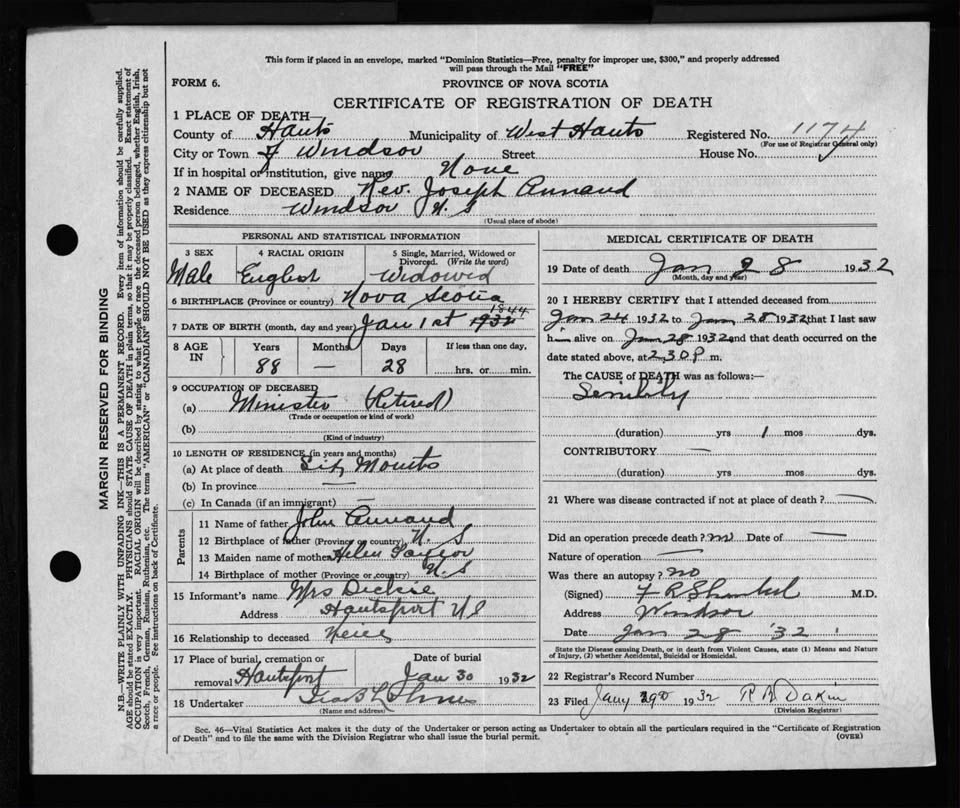 This form if placed in an envelope, marked "Dominion Statistics—Free, penalty for improper use, $300," and properly addressed
will pass through the Mail "FREE"
FORM 6.
PROVINCE OF NOVA SCOTIA
CERTIFICATE OF REGISTRATION OF DEATH
1 PLACE OF DEATH—
County of Hants Municipality of West Hants Registered No. 1174
(For use of Registrar General only)
City or Town of Windsor Street House No.
If in hospital or institution, give name None
2 NAME OF DECEASED Rev. Joseph Annand
Residence Windsor N. S
(Usual place of abode)
PERSONAL AND STATISTICAL INFORMATION
3 SEX 4 RACIAL ORIGIN 5 Single, Married, Widowed or Divorced. (Write the word)
Male English Widowed
6 BIRTHPLACE (Province or country) Nova Scotia
7 DATE OF BIRTH (month, day and year) Jan 1st 1932 1844
8 AGE IN Years Months Days If less than one day,
88 — 28 hrs. or min.
9 OCCUPATION OF DECEASED
(a) Minister (Retired)
(Trade or occupation or kind of work)
(b)
(Kind of industry)
10 LENGTH OF RESIDENCE (in years and months)
(a) At place of death Six Months
(b) In province —
(c) In Canada (if an immigrant) —
Parents
11 Name of father John Annand
12 Birthplace of father (Province or country) N. S
13 Maiden name of mother Helen
14 Birthplace of mother (Province or country) N. S
15 Informant's name Mrs Dickie
Address Hantsport N S
16 Relationship to deceased Neice
17 Place of burial, cremation or removal Hantsport Date of burial Jan 30 1932
18 Undertaker
(Name and address)
MEDICAL CERTIFICATE OF DEATH
19 Date of death Jan 28 1932
(Month, day and year)
20 I HEREBY CERTIFY that I attended deceased from
Jan 24 1932 to Jan 28 1932 that I last saw
him alive on Jan 28 1932 and that death occurred on the
date stated above, at 2.30 P m.
The CAUSE of DEATH was as follows:—
Senility
(duration) yrs 1 mos dys.
CONTRIBUTORY —
(duration) yrs. mos. dys.
21 Where was disease contracted if not at place of death? —
Did an operation precede death? no Date of —
Nature of operation —
Was there an autopsy? no
(Signed) M.D.
Address Windsor
Date Jan 28 '32
State the Disease causing Death, or in death from Violent Causes, state (1) Means and Nature
of Injury, (2) whether Accidental, Suicidal or Homicidal.
22 Registrar's Record Number
23 Filed Jany 29th 1932 R B Dakin
(Division Registrar)
Sec. 46—Vital Statistics Act makes it the duty of the Undertaker or person acting as Undertaker to obtain all the particulars required in the "Certificate of Registration
of Death" and to file the same with the Division Registrar who shall issue the burial permit.
(OVER)
MARGIN RESERVED FOR BINDING
N.B.—WRITE PLAINLY WITH UNFADING INK—THIS IS A PERMANENT RECORD. Every item of information should be carefully supplied.
AGE should be stated EXACTLY. PHYSICIANS should STATE CAUSE OF DEATH in plain terms, so that it may be properly classified. Exact statement of
OCCUPATION is very important. RACIAL ORIGIN will be described by stating to what people or race the deceased person belonged, whether English, Irish,
Scotch, French, German, Russian, Ruthenian, etc. The terms "AMERICAN" or "CANADIAN" SHOULD NOT BE USED as they express citizenship but not
a race or people. See instructions on back of Certificate.